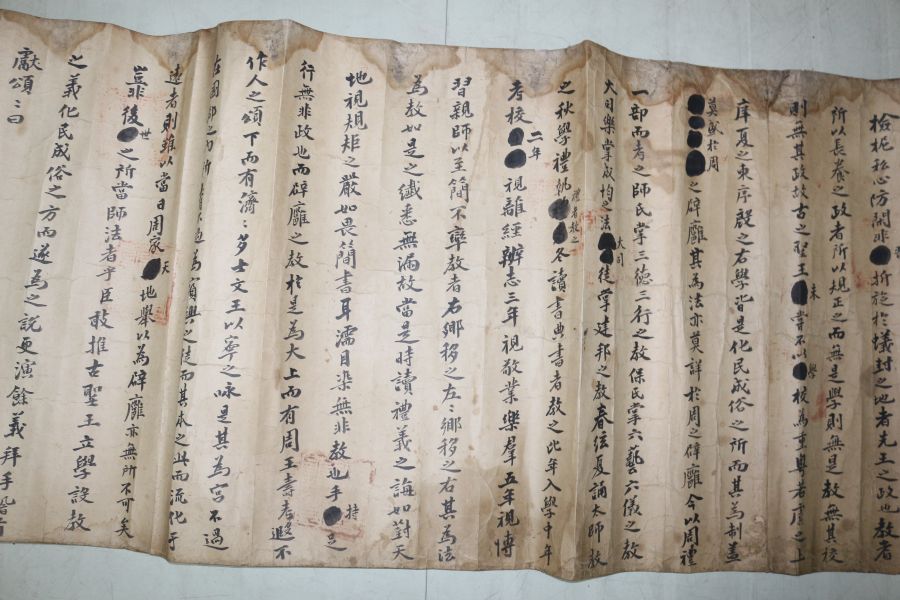 檢柅私心防閑非折旋於蟻封之地者先王之政也教者
所以長養之政者所以規正之而無是學則無是教無其校
則無其政故古之聖王未嘗不以學校為重粵若虞之上
庠夏之東序殷之右學皆是化民成俗之所而其為制蓋
莫盛於周之辟廱其為法亦莫詳於周之辟廱今以周禮
一部而考之師氏掌三德三行之教保氏掌六藝六儀之教
大司樂掌成均之法大司徒掌建邦之教春絃夏誦太師教
之秋學禮執禮者教之冬讀書典書者教之比年入學中年
考校二年視離經辨志三年視敬業樂羣五年視博
習親師以至簡不率教者右鄉移之左〻鄉移之右其為法
為教如是之纖悉無漏故當是時讀禮義之誨如對天
地視規矩之嚴如畏簡書耳濡目染無非教也手持足
行無非政也而辟廱之教於是為大上而有周王壽考遐不
作人之頌下而有濟〻多士文王以寧之咏是其為宮不過
在國都之內所為興之徒而其本之此而流化于
遠者則雖以當日周家天地舉以為辟廱亦無所不可矣
豈非後世之所當師法者乎臣敢推古聖王立學設教
之義化民成俗之方而遂為之說更演餘義拜手稽首
獻頌〻曰